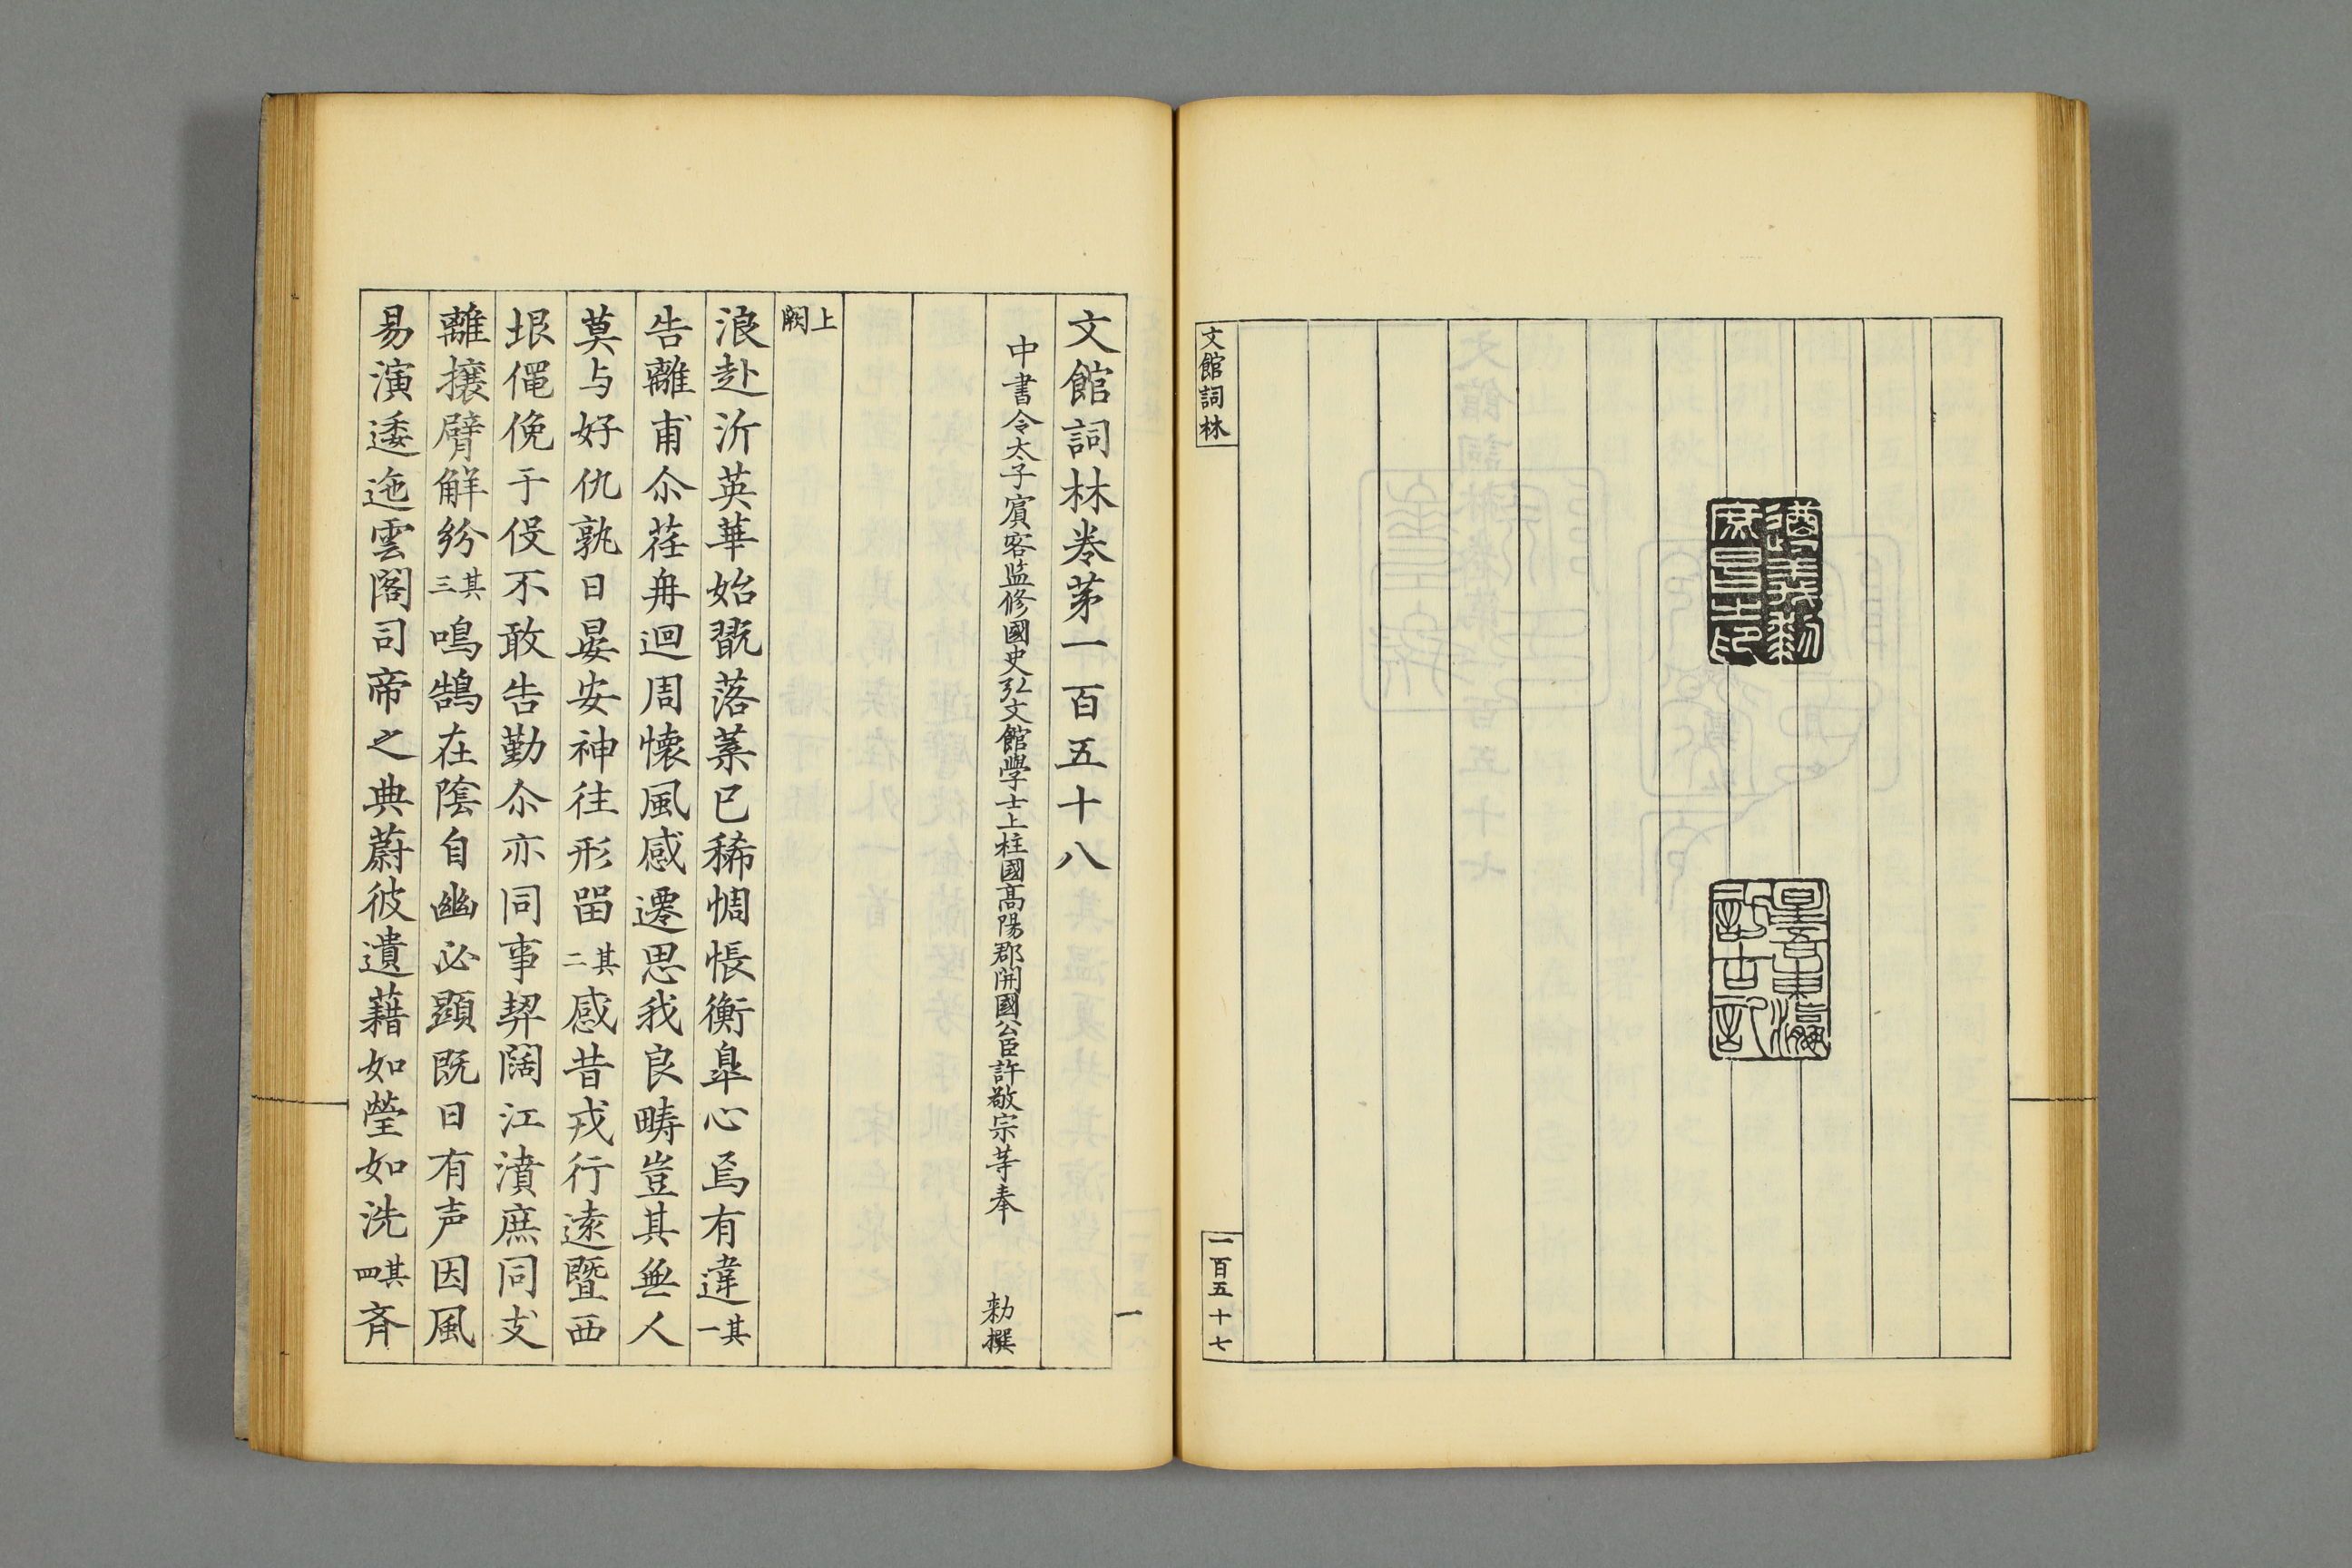 文館詞林
一百五十七
星吾東瀛訪古記
一
文館詞林卷苐一百五十八
中書令太子賔客監修國史弘文館學士上柱國高陽郡開國公臣許敬宗等奉 勑撰
上闕
浪赴沂英華始翫落葉已稀惆悵衡臯心焉有違其一
告離甫尒荏冉迴周懐風感遷思我良疇豈其無人
莫与好仇孰曰晏安神往形畱其二感昔戎行逺曁西
垠僶俛于役不敢告勤尒亦同事契闊江濆庶同支
離攘臂解紛其三鳴鵠在隂自幽必顕既曰有声因風
易演逶迤雲閣司帝之典蔚彼遺藉如瑩如洗其四斉